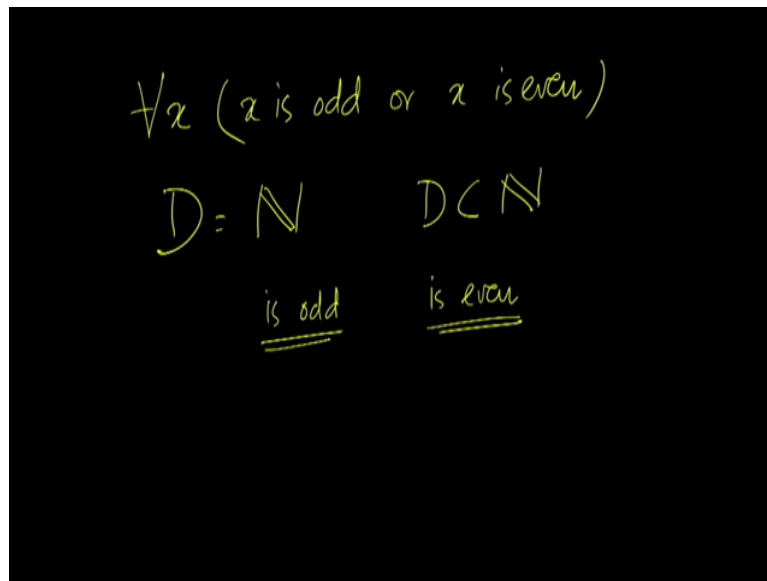 ∀x (x is odd or x is even)
D = ℕ D ⊂ ℕ
is odd is even